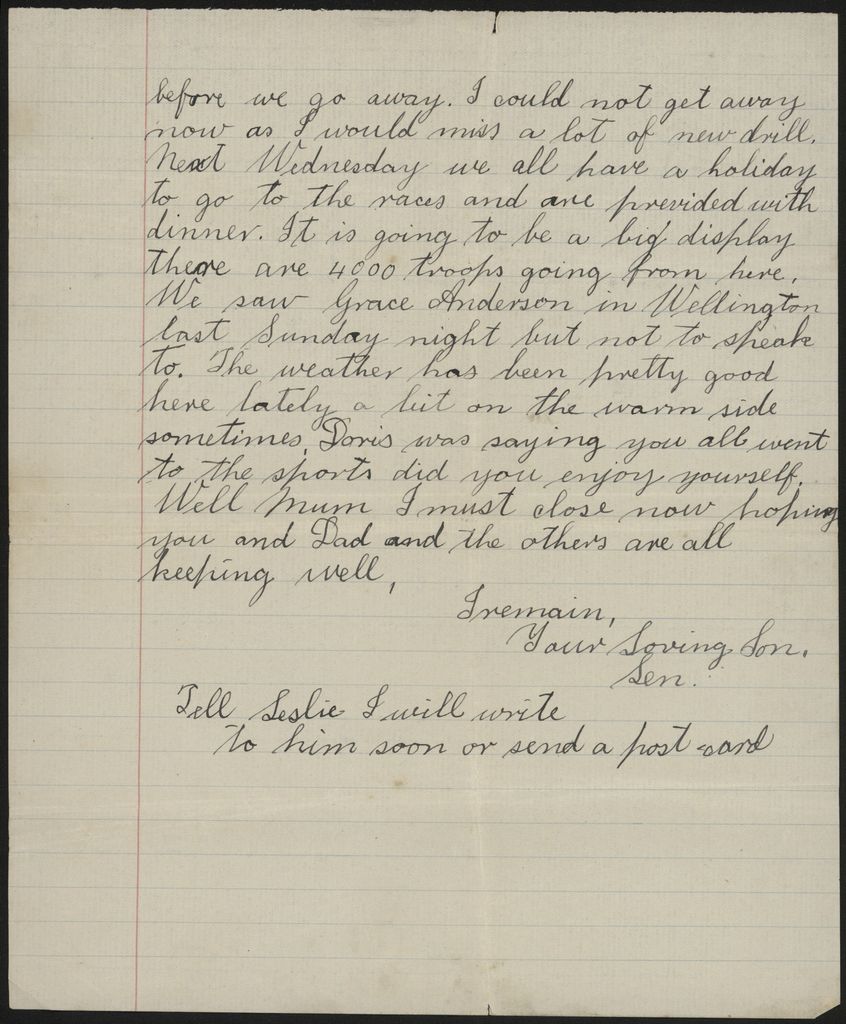 before we go away. I could not get away
now as I would miss a lot of new drill.
Next Wednesday we all have a holiday
to go to the races and are previded with
dinner. It is going to be a big display
there are 4000 troops going from here.
We saw Grace Anderson in Wellington
last Sunday night but not to speak
to. The weather has been pretty good
here lately a bit on the warm side
sometimes. Doris was saying you all went
to the sports did you enjoy yourself.
Well Mum I must close now hoping
you and Dad and the others are all
keeping well,
I remain,
Your Loving Son.
Len.
Tell Leslie I will write
to him soon or send a post card